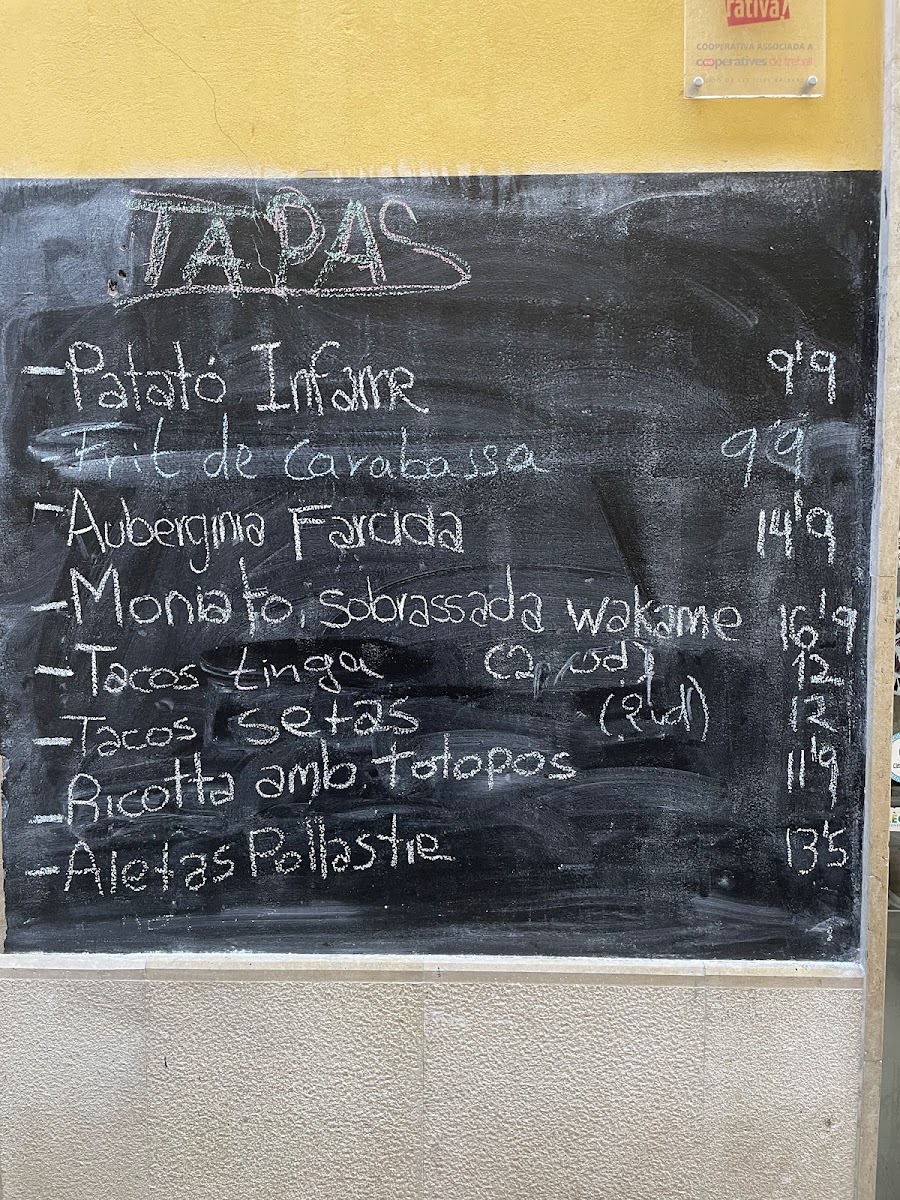 rativa!
COOPERATIVA ASSOCIADA A
cooperatives de treball
TAPAS
-Patató Infame 9'9
-Frit de Carabassa 9'9
-Auberginia Farcida 14'9
-Moniato, sobrassada wakame 16'9
-Tacos tinga (2 ud) 12
-Tacos setas (2ud) 12
-Ricotta amb totopos 11'9
-Aletas Pollastre 13'5